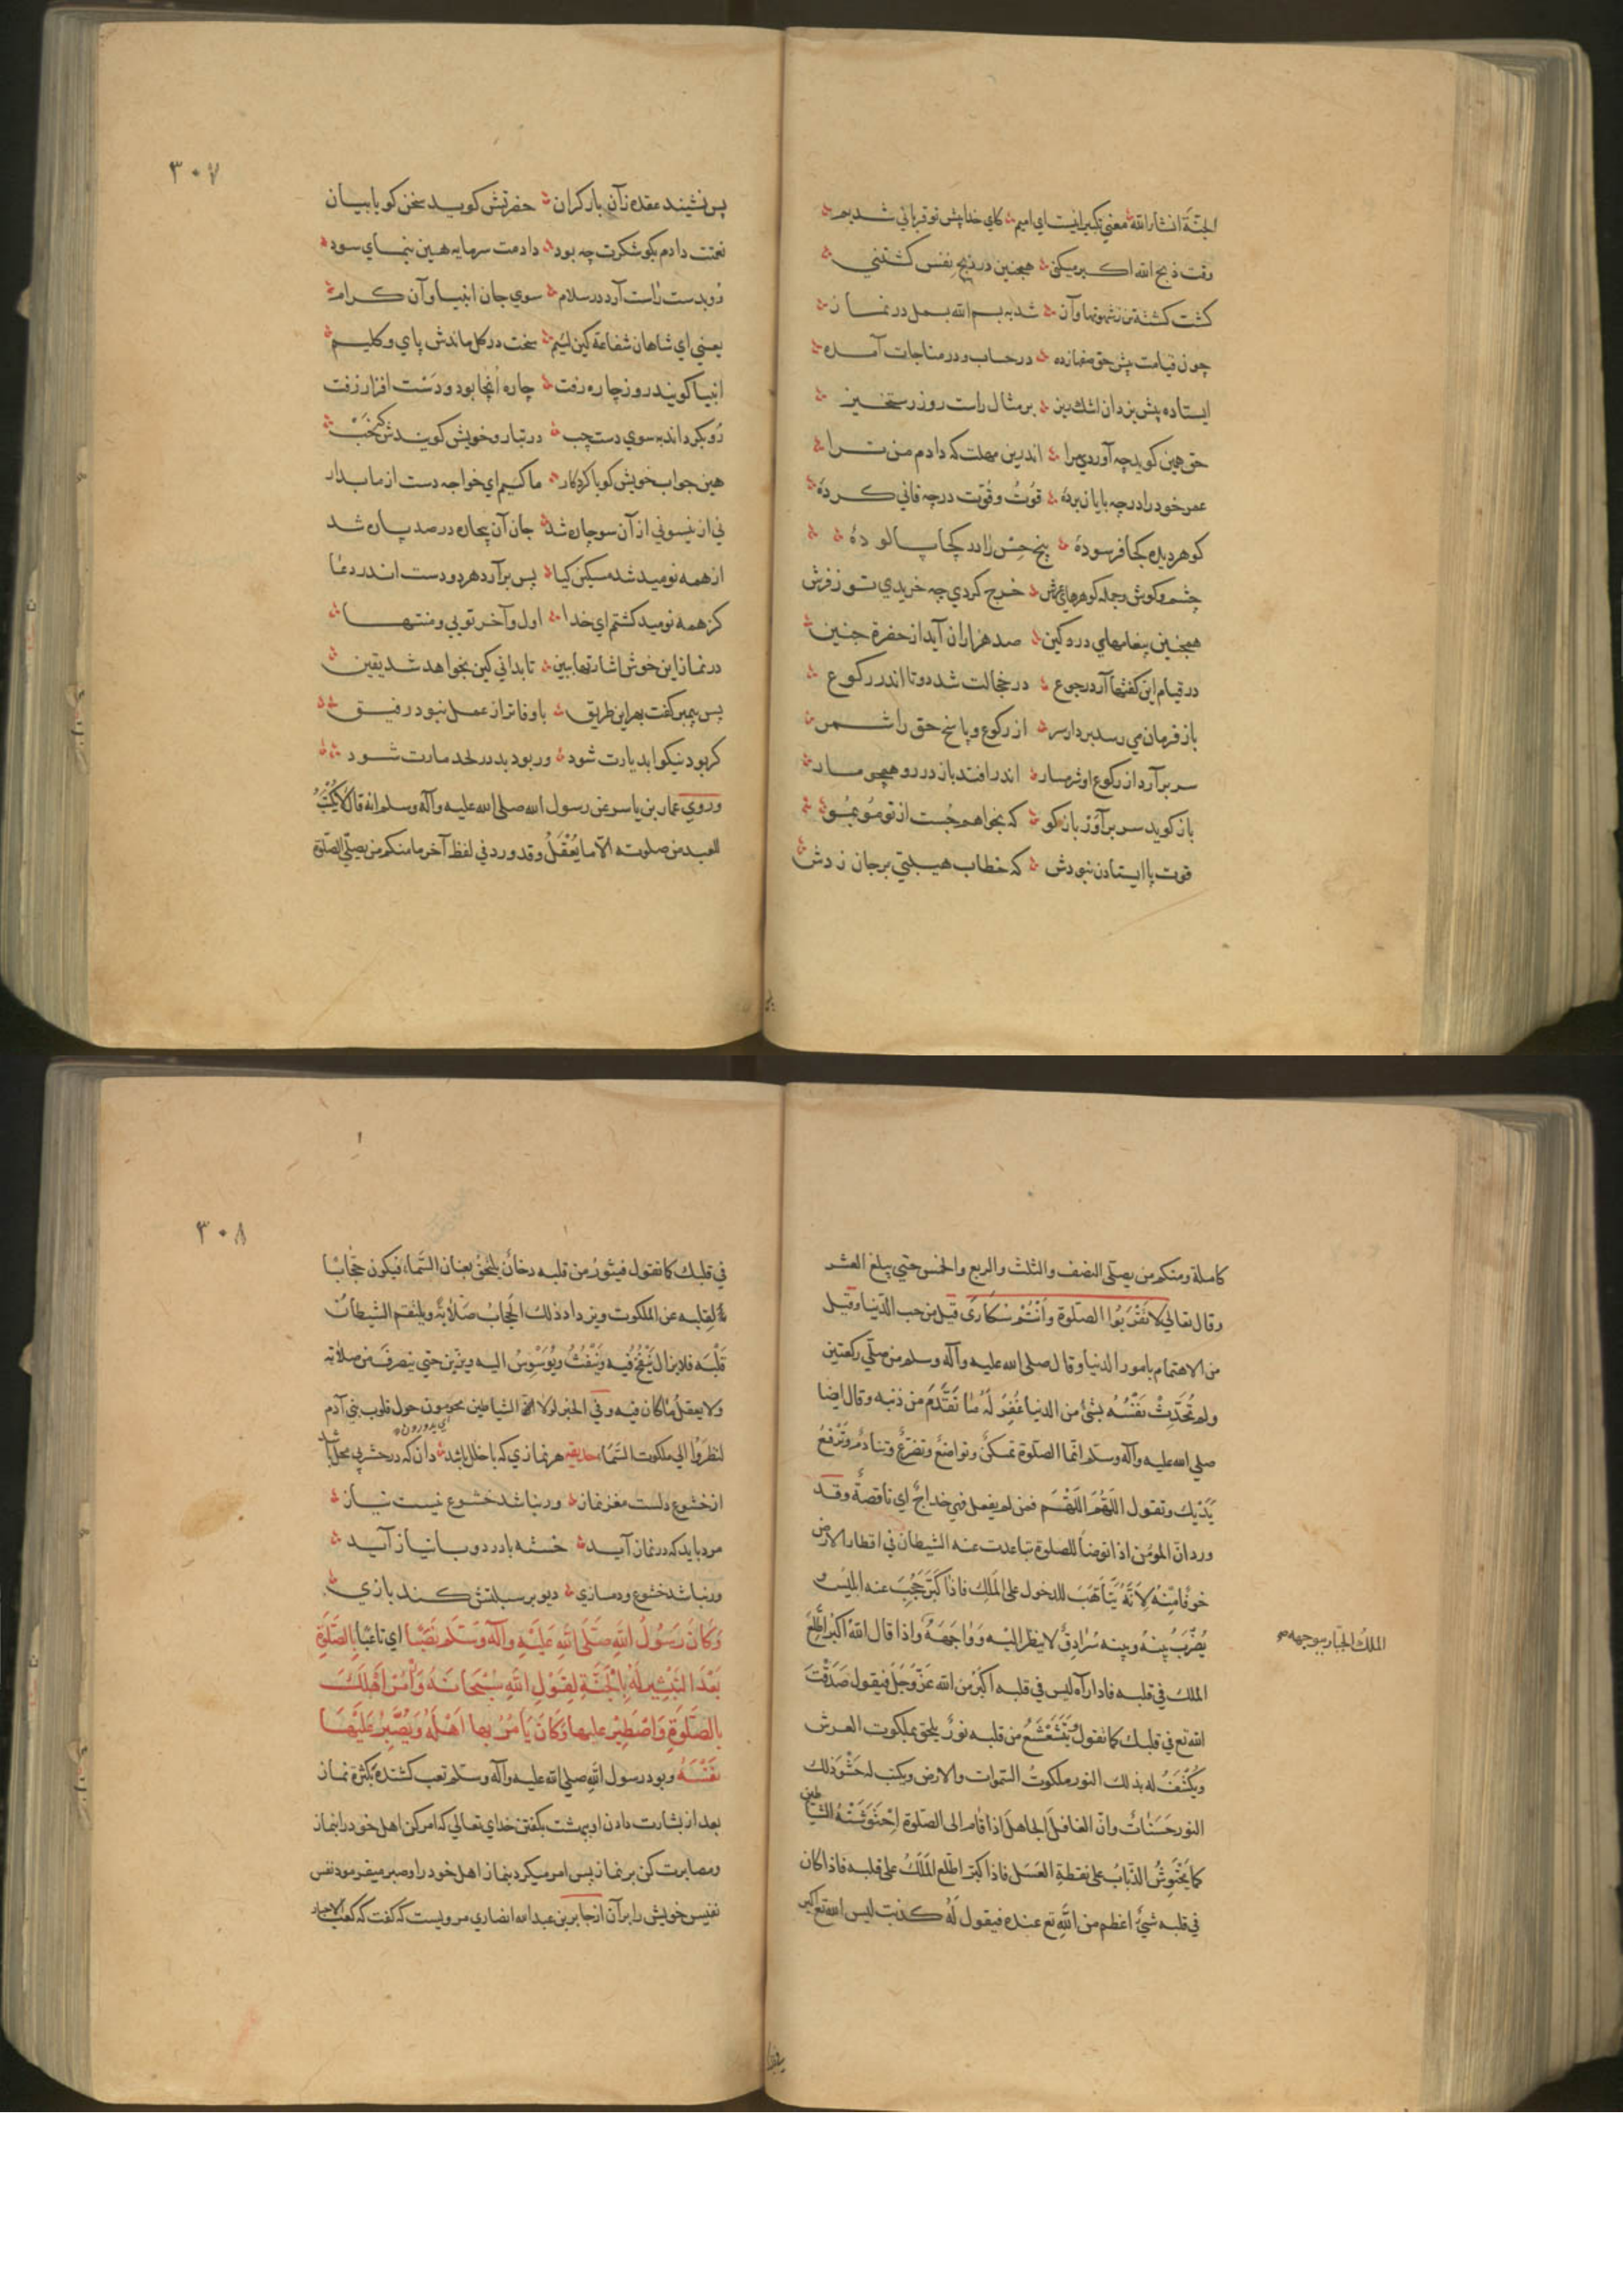 الجنّة انشاء الله معني تكبير اينست اي اميم كاي خدا پيش تو قرباني شديم
وقت ذبح الله اكبر ميكني همچنين در ذبح نفس كشتني
كشت كشته تن ز شهوتها و آز شد به بسم الله بسمل در نماز
چون قيامت پيش حق صفها زده در حساب و در مناجات آمده
ايستاده پيش يزدان اشك ريز بر مثال راست روز رستخيز
حق همين كويد چه آوردي مرا اندرين مهلت كه دادم من ترا
عمر خود را در چه پايان برده قوت و قوّت در چه فاني كرده
كوهر ديده كجا فرسوده پنج حسّ را در كجا پالوده
چشم و كوش و جمله كوهرهاي عرش خرج كردي چه خريدي تو ز فرش
همچنين پيغامهاي درد كين صد هزاران آيد از حضرة چنين
در قيام اين كفتها آرد رجوع در خجالت شد دوتا اندر ركوع
باز فرمان مي رسد بردار سر از ركوع و پاسخ حق را شمر
سر برآرد از ركوع او شرمسار اندر افتد باز در رو همچو مار
باز كويد سر برآور باز كو كه بخواهم جست از تو مو بمو
قوت پا ايستادن نبودش كه خطاب هيبتي بر جان زدش
٣٠٧
پس نشيند عقده زآن بار كران حضرتش كويد سخن كو با بيان
نعمتت دادم بكو شكرت چه بود دادمت سرمايه هين بنماي سود
رو بدست راست آرد در سلام سوي جان انبيا و آن كرام
يعني اي شاهان شفاعة كين لئيم سخت در كل ماندش پاي و كليم
انبيا كويند روز چاره رفت چاره آنجا بود و دست افزار زفت
رو بكرداند به سوي دست چپ در تبار و خويش كويندش كه خَبْ
هين جواب خويش كو با كردكار ما كئيم اي خواجه دست از ما بدار
ني ازين سو ني از آن سو چاره شد جان آن بيچاره در صد پاره شد
از همه نوميد شد مسكين كيا پس برآرد هر دو دست اندر دعا
كز همه نوميد كشتم اي خدا اول و آخر تويي و منتها
در نماز اين خوش اشارتها ببين تا بداني كين بخواهد شد يقين
پس پيمبر كفت بهر اين طريق باوفاتر از عمل نبود رفيق
كر بود نيكو ابد يارت شود ور بود بد در لحد مارت شود
وروي عمار بن ياسر عن رسول الله صلى الله عليه وآله وسلم انه قال لا يُكْتَبُ
للعبد من صلوته الّا ما يُعْقَلُ وقد ورد في لفظ آخر ما منكم من يصلّي الصلوة
كاملة ومنكم من يصلّي النصف والثلث والربع والخمس حتي يبلغ العشر
وقال تعالي لا تَقْرَبُوا الصّلوة وَاَنْتُمْ سُكَارَى قيل من حب الدّنيا وقيل
من الاهتمام بامور الدنيا وقال صلى الله عليه وآله وسلم من صلّي ركعتين
ولم تُحَدِّثْ نَفْسُهُ بشئ من الدنيا غُفِرَ لَهُ مَا تَقَدَّمَ من ذنبه وقال ايضا
صلي الله عليه وآله وسلم انّما الصّلوة تمسكنٌ وتواضعٌ وتضرّعٌ وتنادمٌ وتَرْفَعُ
يَدَيْكَ وتقول اللّهُمَّ اللّهُمَّ فمن لم يفعل فهي خداجٌ اي ناقصةٌ وقد
ورد انّ المؤمن اذا توضأ للصلوة تباعدت عنه الشيطان في اقطار الارض
خوفًا مِنْهُ لِاَنَّهُ يَتَأهَّبَ للدخول على المَلِكِ فاذا كبّر حُجِبَ عنه ابليس و
يُضْرَبُ بينه وبينه سُرَادِقٌ لا ينظر اليه وَوَاجَهَهُ واذا قال الله اكبر اطّلع
الملك الجبّار بوجهه صح
الملك في قلبه فاذا رآه ليس في قلبه اكبرُ من الله عَزَّ وَجَلَّ فيقول صَدَقْتَ
الله تع في قلبك كما تقول وَيَتَشَعْشَعُ من قلبه نورٌ يلحق بملكوت العرش
ويُكْشَفُ له بذلك النور ملكوتُ السّموات والارض ويكتب له حَشْوَ ذلك
النور حَسَنَاتٌ وانّ الغافل الجاهلَ اذا قام الى الصّلوة اِحْتَوَشَتْهُ الشياطين
كما يَحْتَوِشُ الذّبابُ على نقطةِ العَسَل فاذا كبّر اطّلع المَلَكُ على قلبه فاذا كان
في قلبه شئٌ اعظم من اللّهِ تع عنده فيقول لَهُ كذبت ليس الله تع اكبر
٣٠٨
في قلبك كما تقول فيثورُ من قلبه دخانٌ يلحق بعنان السّماء فيكون حجابًا
لقلبه عن الملكوت ويزداد ذلك الحجابُ صَلَابةً ويلتقم الشيطانُ
قَلْبَه فلا يزال يَنْفُخُ فيه وَيَنْفُثُ ويُوَسْوِسُ اليه ويزيّن حتي ينصرفَ من صلاته
ولا يعقلُ ما كان فيه وفي الخبر لولا انّ الشياطين يحومون حول قلوب بني آدم
اي يدورون
لنظروا الي ملكوت السّماء حديقه هر نمازي كه با خلل باشد دان كه در حشر بي محل باشد
از خشوع دلست مغز نماز ور نباشد خشوع نيست نياز
مرد بايد كه در نماز آيد خسته با درد و با نياز آيد
ور نباشد خشوع و دمسازي ديو بر سبلتش كند بازي
وَكَانَ رَسُولُ اللّهِ صَلَّى اللّهِ عَلَيْهِ وَآلَهُ وَسَلَّم نَصِبًا اي تاعبًا بِالصّلَوةِ
بَعْدَ التَبْشِيرِ لَهُ بِالْجَنَّةِ لِقَوْلِ اللّهِ سُبْحَانَهُ وَأْمُرْ اَهْلَكَ
بِالصَلَوةِ وَاصْطَبِرْ عليها وَكَانَ يَأمُرُ بها اَهْلَهُ وَيُصَبِّرُ عَلَيْهَا
نَفْسَهُ وبود رسول اللّهِ صلي الله عليه وآله وسلم تعب كشنده بكثرة نماز
بعد از بشارت دادن او ببهشت بكفتن خداي تعالي كه امر كن اهل خود را بنماز
ومصابرت كن بر نماز پس امر ميكرد بنماز اهل خود را وصبر ميفرمود نفس
نفيس خويش را بر آن از جابر بن عبد الله انصاري مرويست كه كفت كه كعب الاحبار